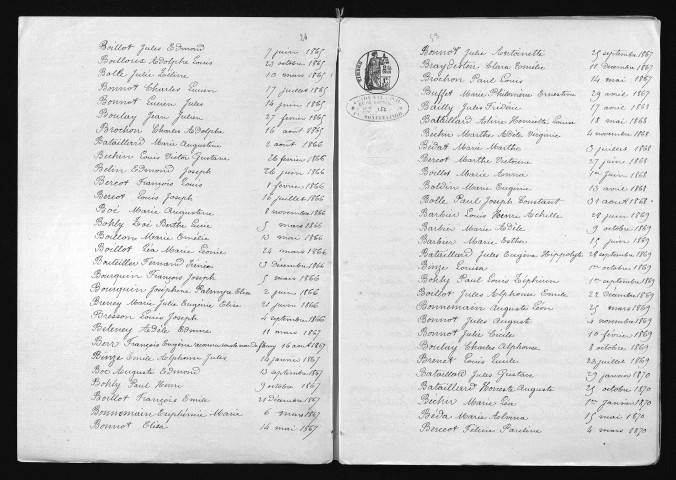 24
Boillot Jules Edmond 7 juin 1865
Boilloux Adolphe Louis 23 octobre 1865
Bolle Julie Eveline 10 mars 1865
Bonnot Charles Lucien 17 juillet 1865
Bonnot Lucien Jules 14 juin 1865
Boulay Jean Julien 27 février 1865
Brochon Charles Adolphe 16 août 1865
Bataillard Marie Augustine 2 août 1866
Bechin Louis Victor Gustave 26 février 1866
Belin Edmond Joseph 26 juin 1866
Bercot François Louis 1 février 1866
Bercot Louis Joseph 16 juillet 1866
Boé Marie Augustine 8 novembre 1866
Bohly Zoé Berthe Lucie 5 mars 1866
Boillon Marie Emélie 10 mai 1866
Boillot Léa Marie Léonie 24 mars 1866
Bouteiller Fernand 13 décembre 1866
Bourquin François Joseph 5 mars 1866
Bourquin Joséphine Palmyre Elisa 2 juin 1866
Buney Marie Julie Eugénie Elise 21 juin 1866
Bresson Louis Joseph 4 septembre 1866
Beleney Adèle Emma 11 mars 1867
Berr François Eugène 16 août 1867
Binge Emile Alphonse Jules 14 janvier 1867
Boé Auguste Edmond 13 septembre 1867
Bohly Paul Henri 9 octobre 1867
Boillot François Emile 21 décembre 1867
Bonnemain Euphémie Marie 6 mars 1867
Bonnot Elisa 14 mai 1867
Bonnot Julie Antoinette 25 septembre 1867
Clara Emélie 11 décembre 1867
Brochon Paul Louis 14 mai 1867
Buffet Marie Philomène Ernestine 29 avril 1867
Bailly Jules Frédéric 17 avril 1868
Bataillard Alvire Henriette Louise 18 mai 1868
Béchin Marthe Adèle Virginie 4 novembre 1868
Bédat Marie Marthe 13 juillet 1868
Bercot Marthe Victorine 27 juin 1868
Boillot Marie Anna 1er juin 1868
Marie Eugénie 13 avril 1868
Bolle Paul Joseph Constant 31 août 1868
Barbier Louis Achille 28 juin 1869
Barbier Marie Adèle 9 octobre 1869
Barbier Marie Esther 15 juin 1869
Bataillard Jules Eugène Hippolyte 28 septembre 1869
Binge Louisa 1er octobre 1869
Bohly Paul Louis Zéphirin 1er septembre 1869
Boillot Jules Alphonse Emile 22 décembre 1869
Bonnemain Auguste Léon 25 mars 1869
Bonnot Jules Auguste 4 novembre 1869
Bonnot Julie Cécile 10 février 1869
Boulay Charles Alphonse 8 octobre 1869
Brenet Louis Emile 23 juillet 1869
Bataillard Jules Gustave 29 janvier 1870
Bataillard Honeste Auguste 25 octobre 1870
Béchin Marie Léa 1er janvier 1870
Béda Marie Albina 15 mai 1870
Bercot Félicie Pauline 4 mars 1870